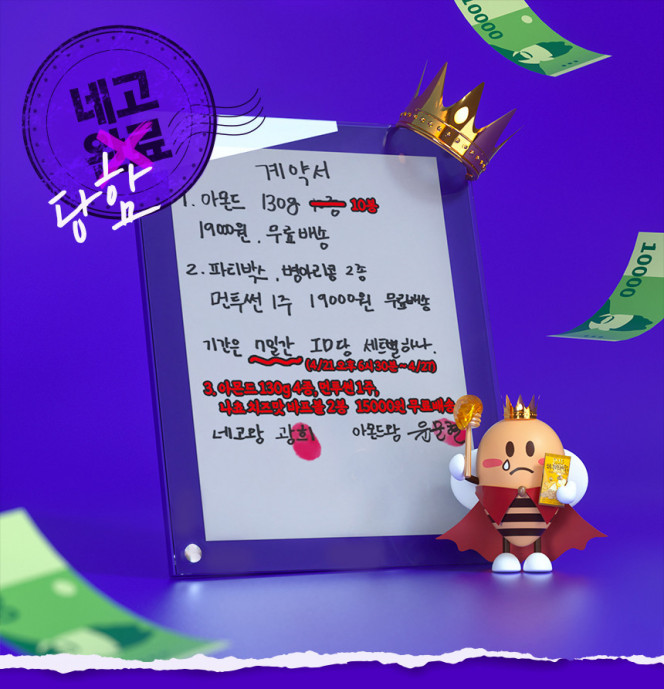 10000
네고
완료
당함
계약서
1. 아몬드 130g 10봉
19000원, 무료배송
2. 파티박스, 병아리콩 2종
먼투썬 1주 19000원 무료배송
기간은 7일간 ID당 세트별 하나.
(4/21 오후 6시 30분~4/27)
3. 아몬드 130g 4종, 먼투썬 1주,
나쵸 치즈맛 바프볼 2봉 15000원 무료배송
네고왕 광희 아몬드왕 윤문현
10000